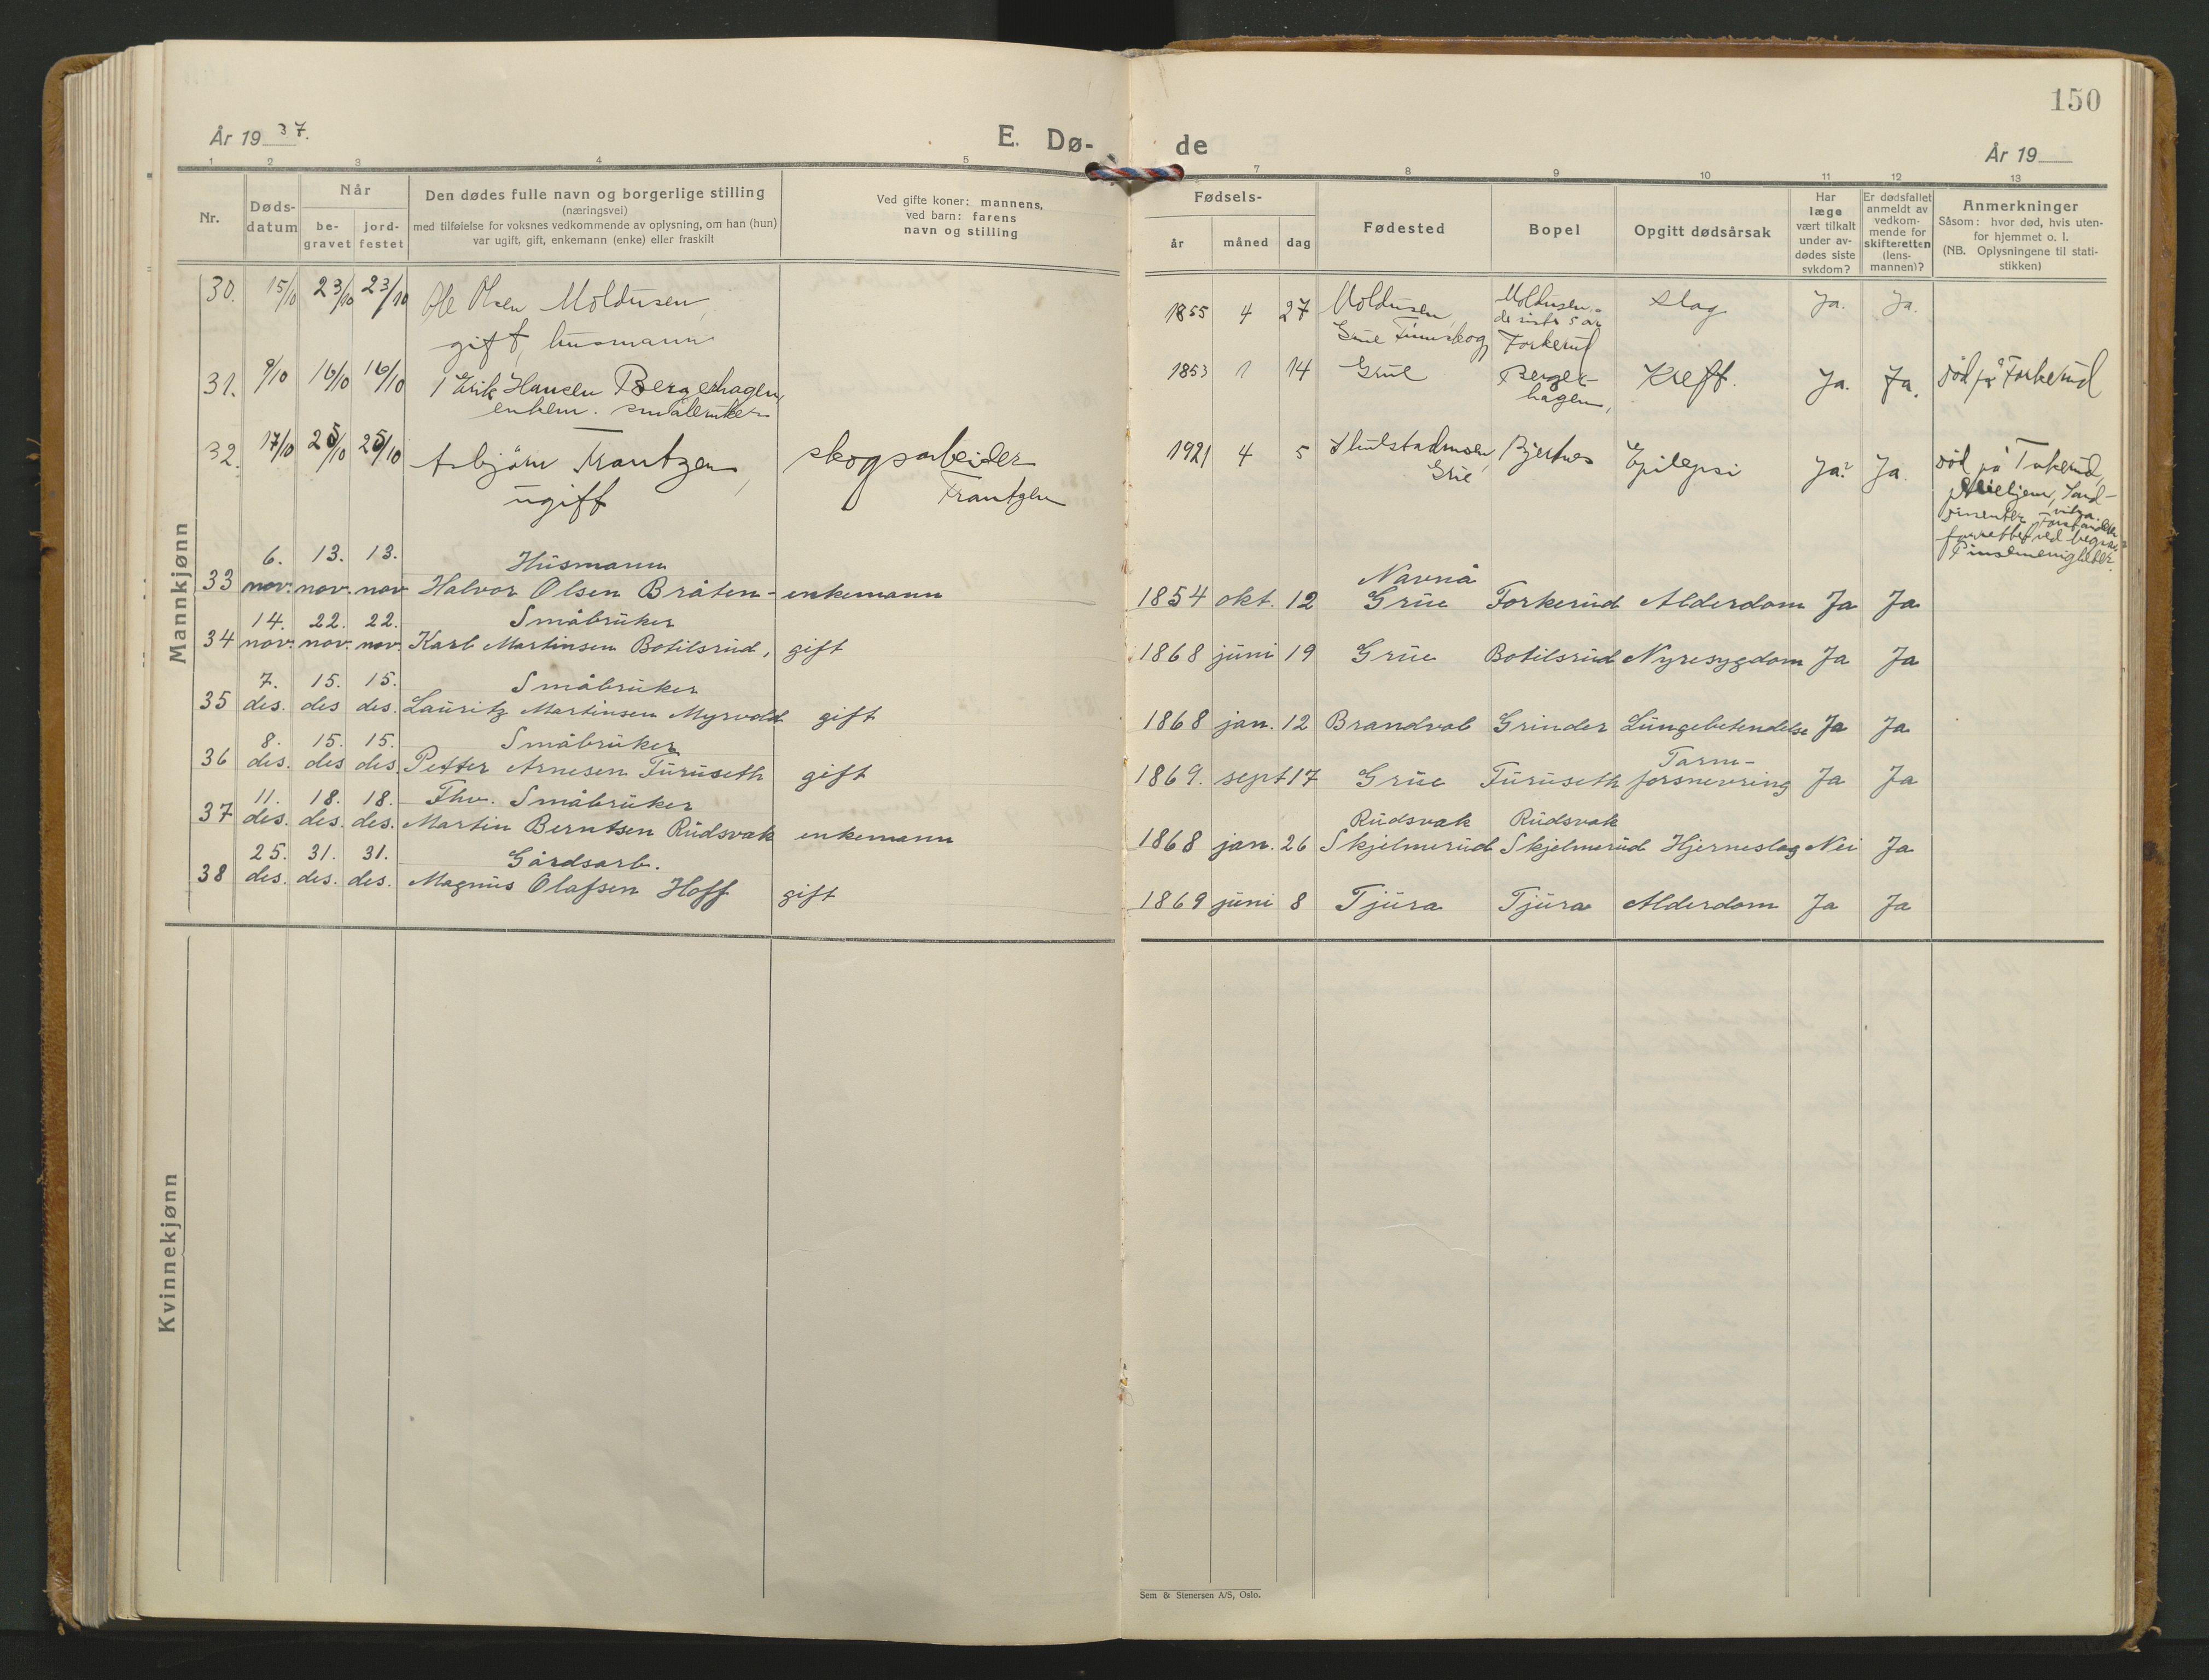 150
År 1937.
E. Dø-
de
År 19
1 2 3 4 5
7 8 9 10 11 12 13
Nr.
Døds-
datum
Når
be-
gravet
jord-
festet
Den dødes fulle navn og borgerlige stilling
(næringsvei)
med tilføielse for voksnes vedkommende av oplysning, om han (hun)
var ugift, gift, enkemann (enke) eller fraskilt
Ved gifte koner: mannens,
ved barn: farens
navn og stilling
Fødsels-
år måned dag
Fødested
Bopel
Opgitt dødsårsak
Har
læge
vært tilkalt
under av-
dødes siste
sykdom?
Er dødsfallet
anmeldt av
vedkom-
mende for
skifteretten
(lens-
mannen)?
Anmerkninger
Såsom: hvor død, hvis uten-
for hjemmet o. l.
(NB. Oplysningene til stati-
stikken)
Mannkjønn
30. 15/10 23/10 23/10 Ole Olsen Moldusen,
gift, husmann
1855 4 27 Moldusen, Moldusen, Slag Ja. Ja.
de siste 5 år
Grue Finnskog Forkerud
31. 9/10 16/10 16/10 Erik Hansen Bergerhagen,
enkem. småbruker
1853 1 14 Grue Berger- Kreft. Ja. Ja. død på Forkerud
hagen,
32. 17/10 25/10 25/10 Asbjørn Frantzen, skogsarbeider
ugift Frantzen
1921 4 5 Bjertnes Epilepsi Ja? Ja. død på
Grue
Pleiehjem,
forrettet ved begra-
Pinsemenigheten.
6. 13. 13. Husmann
33 nov. nov. nov Halvor Olsen Bråten - enkemann
Navnå
1854 okt. 12 Grue Forkerud Alderdom Ja Ja
14. 22. 22. Småbruker
34 nov. nov. nov. Karl Martinsen Botilsrud, gift
1868 juni 19 Grue Botilsrud Nyresygdom Ja Ja
7. 15. 15. Småbruker
35 des. des des. Lauritz Martinsen Myrvold gift
1868 jan. 12 Brandval Grinder Lungebetendelse Ja Ja
8. 15. 15. Småbruker
36 des. des des. Petter Arnesen Furuseth gift
Tarm-
1869. sept 17 Grue Furuseth forsnevring Ja Ja
11. 18. 18. Fhv. Småbruker
37 des. des. des. Martin Berntsen Rudsvak enkemann
Rudsvak Rudsvak
1868 jan. 26 Skjelmerud Skjelmerud Hjerneslag Nei Ja
25. 31. 31. Gårdsarb.
38 des. des. des. Magnus Olafsen Hoff gift
1869 juni 8 Tjura Tjura Alderdom Ja Ja
Kvinnekjønn
Sem & Stenersen A/S, Oslo.